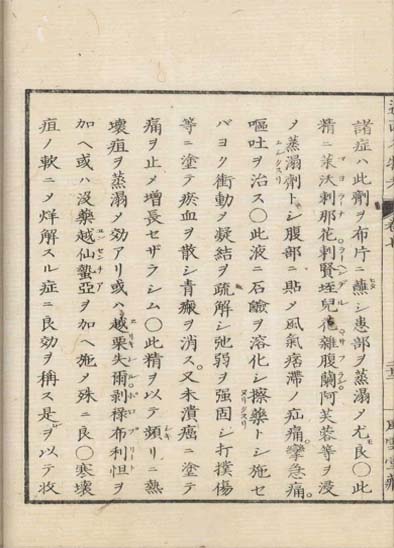 諸症ハ此劑ヲ布片ニ蘸シ患部ヲ蒸溻メ尤良〇此
精ニ茉沃剌那花剌賢垤兒花雜腹蘭阿芙蓉等ヲ浸
メ蒸溻劑トシ腹部ニ貼メ風氣痞滯ノ疝痛攣急痛
嘔吐ヲ治ス〇此液ニ石鹼ヲ溶化シ擦藥トシ施セ
バヨク衝動メ凝結ヲ疏解シ弛弱ヲ强固シ打撲傷
等ニ塗テ瘀血ヲ散シ青瘢ヲ消ス又未潰癌ニ塗テ
痛ヲ止メ增長セザラシム〇此精ヲ以テ頻リニ熱
壞疽ヲ蒸溻メ効アリ或ハ越栗失爾剥禄布利怛ヲ
加ヘ或ハ沒藥越仙蟄亞ヲ加ヘ施メ殊ニ良〇寒壞
疽ノ軟ニメ烊解スル症ニ良効ヲ稱ス是ヲ以テ妝